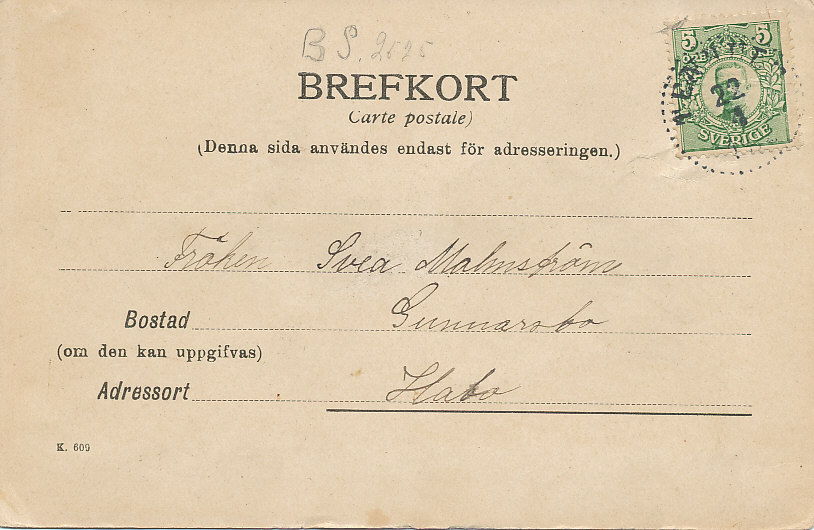 B S. 2525
BREFKORT
Carte postale)
(Denna sida användes endast för adresseringen.)
5 5
22
SVERIGE
Fröken Svea Malmström
Bostad Gunnarsbo
(om den kan uppgifvas)
Adressort Habo
K. 609